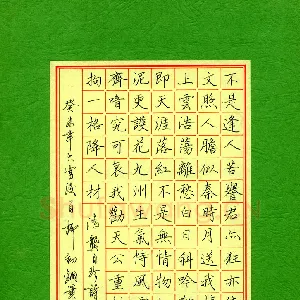 不是逢人苦譽君亦狂亦
文照人膽似秦時月送我
上雲浩蕩離愁白日斜吟
即天涯落紅不是無情物
泥更護花九州生氣恃風
齊喑究可哀我勸天公重
拘一格降人材 清龔自珍詩
癸未年大雪後日柳